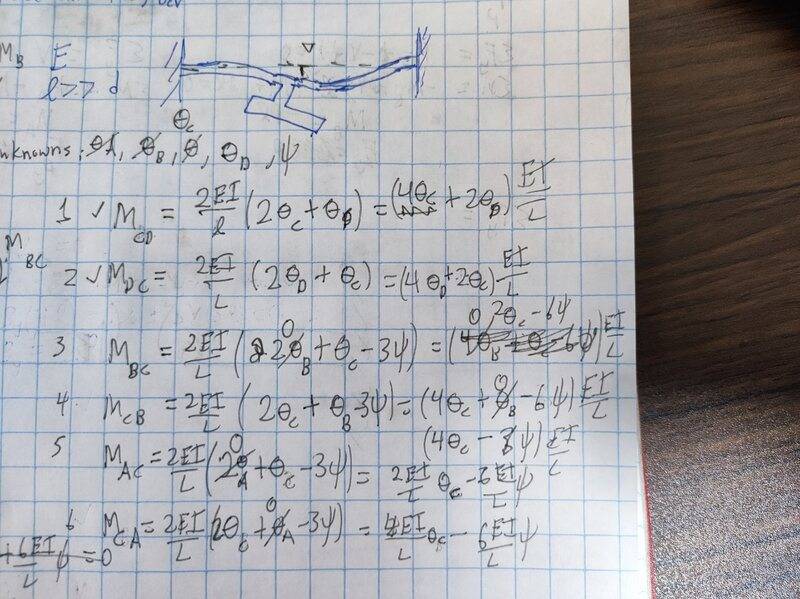 M_B E
l>>d
θ_C
nknowns: θ_A, θ_B, θ, θ_D, ψ
1 ✓ M_CD = 2EI/l (2θ_C + θ_D) = (4θ_C + 2θ_D) EI/L
M_BC
2 ✓ M_DC = 2EI/L (2θ_D + θ_C) = (4θ_D + 2θ_C) EI/L
0 2θ_C - 6ψ
3 M_BC = 2EI/L (2θ_B + θ_C - 3ψ) = ( ) EI/L
4 M_CB = 2EI/L (2θ_C + θ_B - 3ψ) = (4θ_C + θ_B - 6ψ) EI/L
(4θ_C - ψ) EI/L
5 M_AC = 2EI/L (2θ_A + θ_C - 3ψ) = 2EI/L θ_C - 6EI/L ψ
6 M_CA = 2EI/L (2θ_C + θ_A - 3ψ) = 4EI/L θ_C - 6EI/L ψ
+6EI/L ψ = 0